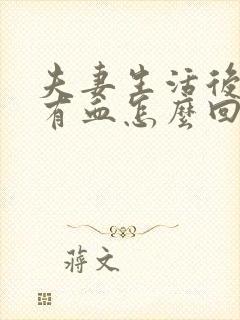 夫妻生活後
有血怎麼回
蔣文